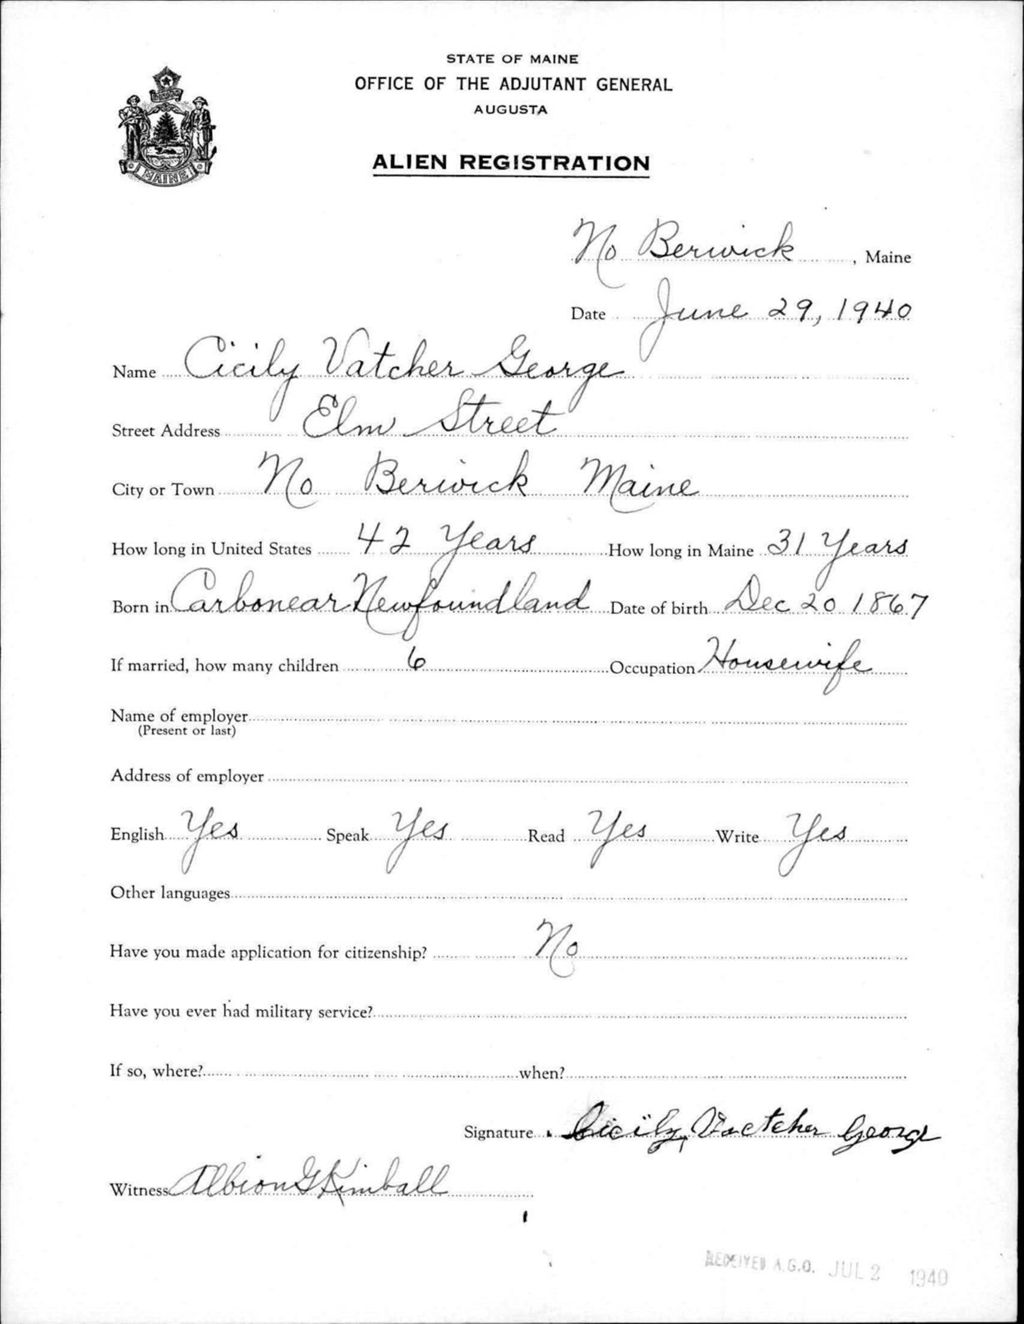 STATE OF MAINE
OFFICE OF THE ADJUTANT GENERAL
AUGUSTA
ALIEN REGISTRATION
MAINE
No Berwick, Maine
Date June 29, 1940
Name Cicily Vatcher George
Street Address Elm Street
City or Town No Berwick Maine
How long in United States 42 Years How long in Maine 31 Years
Born in Carbonear Newfoundland Date of birth Dec 20 1867
If married, how many children 6 Occupation Housewife
Name of employer
(Present or last)
Address of employer
English Yes Speak Yes Read Yes Write Yes
Other languages
Have you made application for citizenship? No
Have you ever had military service?
If so, where? when?
Signature Cicily Vatcher George
Witness Albion G Kimball
RECEIVED A.G.O. JUL 2 1940